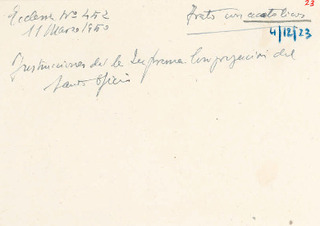 23
Ecclesia Nº 452
Trato con acatolicos
11 Marzo 1950
4/12/23
Instrucciones de la Suprema Congregación del
Santo Oficio